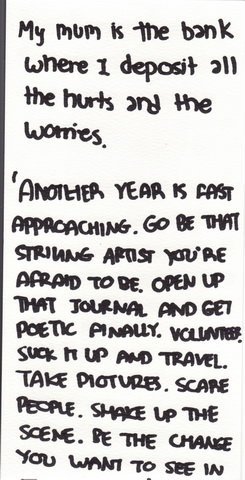 My mum is the bank
where I deposit all
the hurts and the
worries.
'ANOTHER YEAR IS FAST
APPROACHING. GO BE THAT
STRIVING ARTIST YOU'RE
AFRAID TO BE. OPEN UP
THAT JOURNAL AND GET
POETIC FINALLY. VOLUNTEER.
SUCK IT UP AND TRAVEL.
TAKE PICTURES. SCARE
PEOPLE. SHAKE UP THE
SCENE. BE THE CHANGE
YOU WANT TO SEE IN